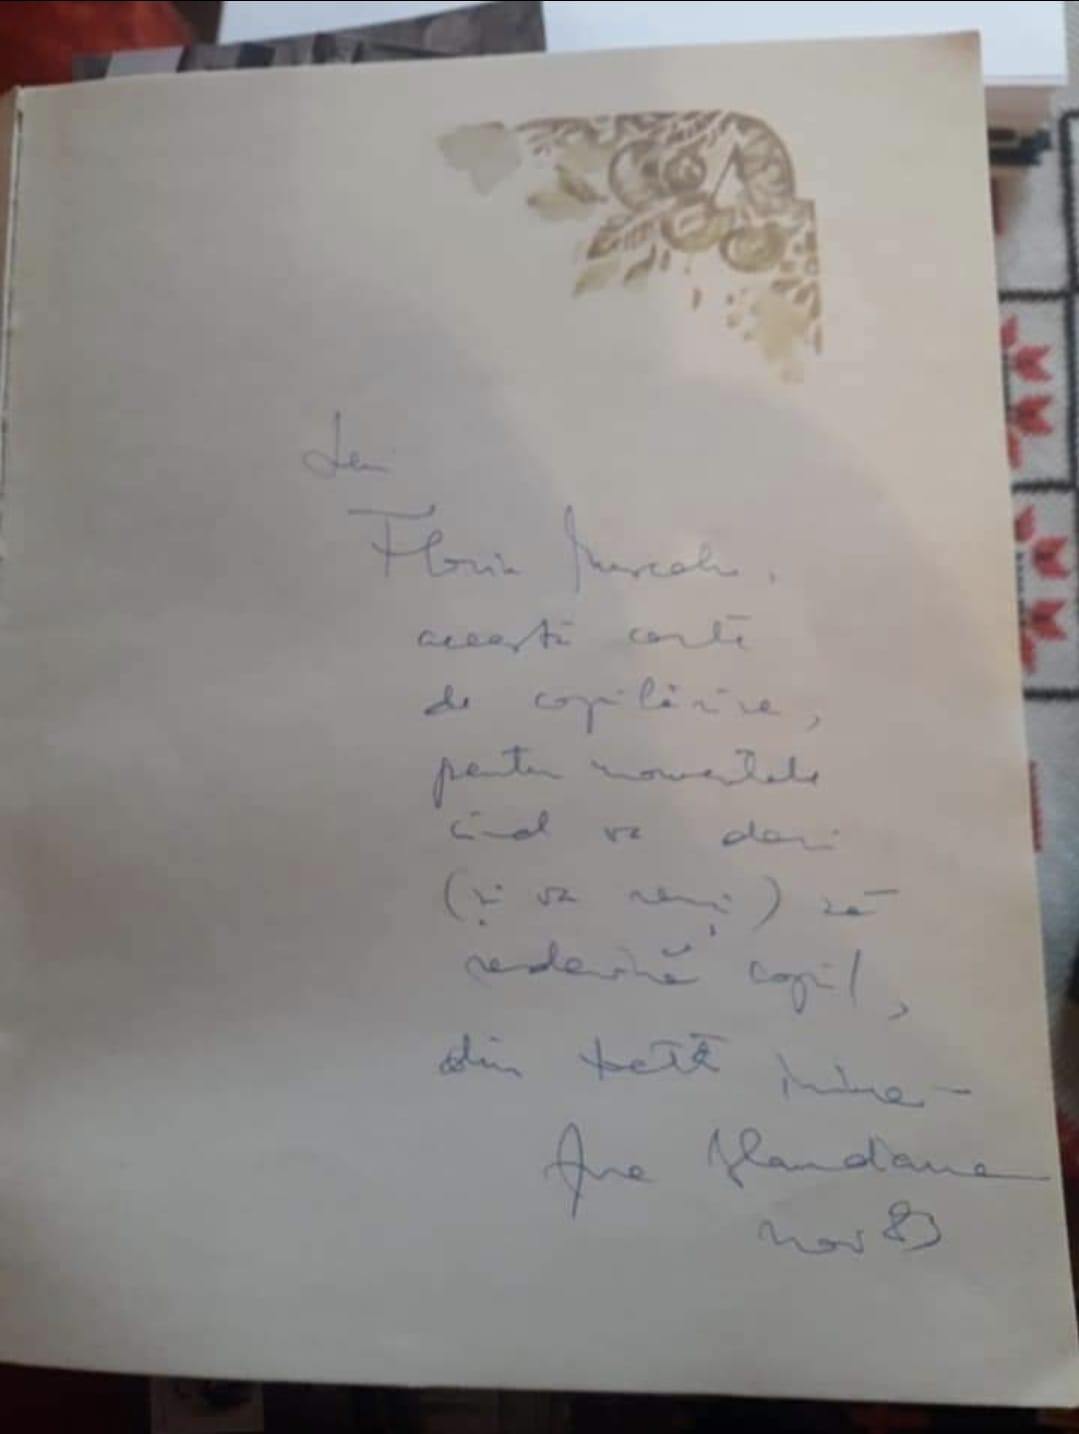 Lui
Florin
această carte
de copilărire,
pentru momentele
când va dori
(și va reuși) să
redevină copil,
din toată inima –
Ana Blandiana
nov 83